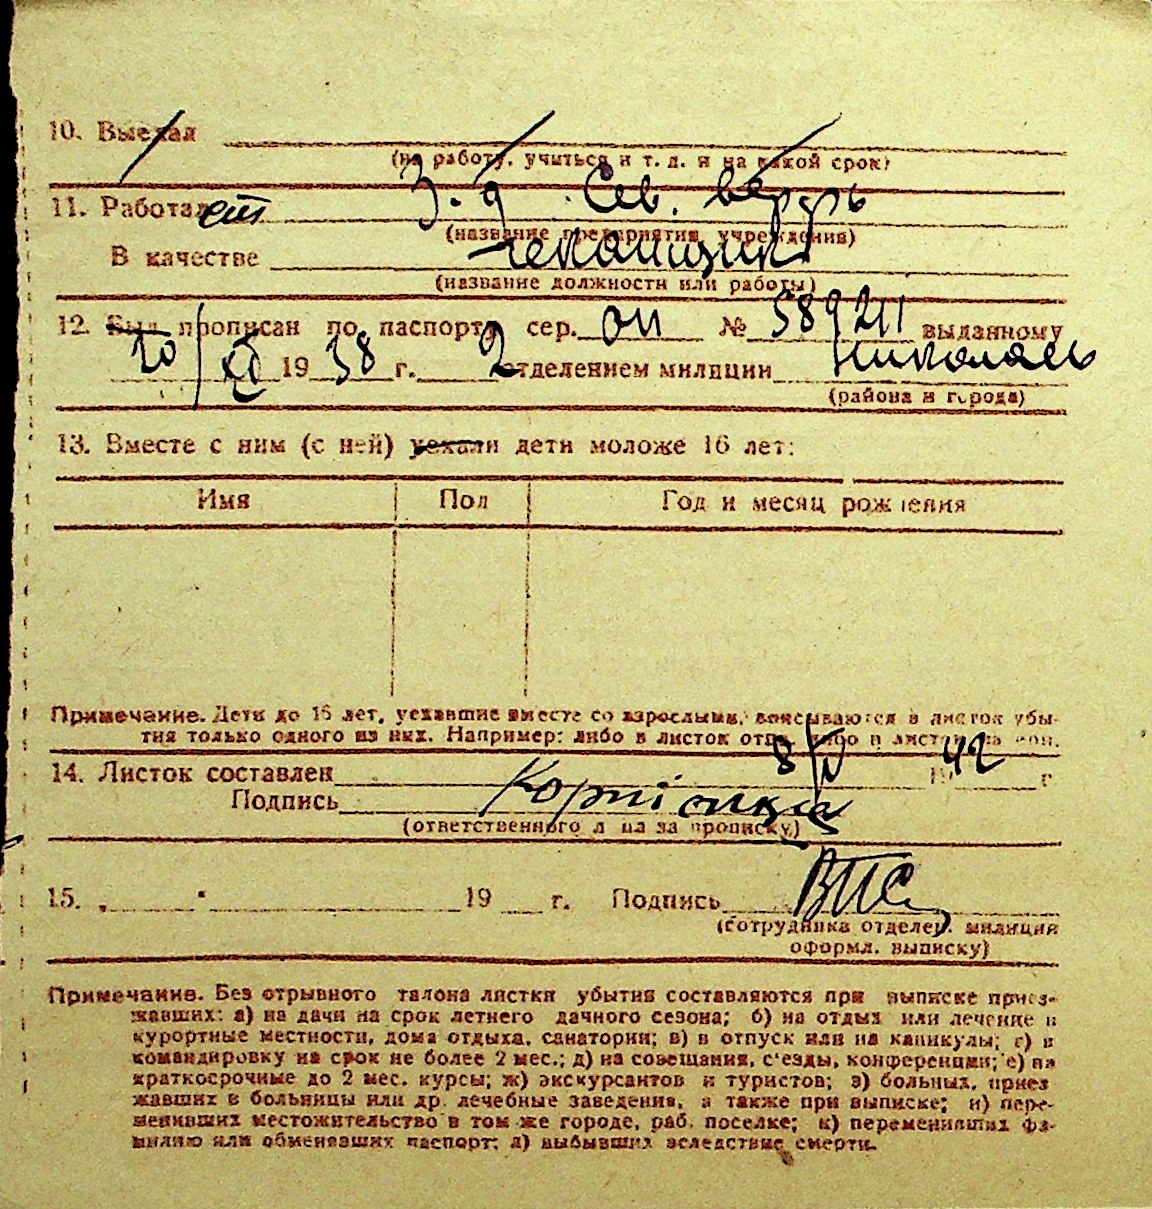 10. Выехал
(на работу, учиться и т. д. и на какой срок)
11. Работает З-д. Сев. верфь
(название предприятия, учреждения)
В качестве чеканщик
(название должности или работы)
12. Был прописан по паспорту сер. ОП № 589211 выданному
20/XI 1938 г. 2 отделением милиции Николаев
(района и города)
13. Вместе с ним (с ней) уехали дети моложе 16 лет:
Имя Пол Год и месяц рождения
Примечание. Дети до 16 лет, уехавшие вместе со взрослыми, вписываются в листок убы-
тия только одного из них. Например: либо в листок отца, либо в листок
14. Листок составлен 8/IV 1942 г
Подпись
(ответственного лица за прописку)
15. „ " 19 г. Подпись
(сотрудника отделен. милиции
оформл. выписку)
Примечание. Без отрывного талона листки убытия составляются при выписке приез-
жавших: а) на дачи на срок летнего дачного сезона; б) на отдых или лечение в
курортные местности, дома отдыха, санатории; в) в отпуск или на каникулы; г) в
командировку на срок не более 2 мес.; д) на совещания, с'езды, конференции; е) на
краткосрочные до 2 мес. курсы; ж) экскурсантов и туристов; з) больных, приез
жавших в больницы или др. лечебные заведения, а также при выписке; и) пере-
менивших местожительство в том же городе, раб. поселке; к) переменивших фа-
милию или обменявших паспорт; л) выбывших вследствие смерти.